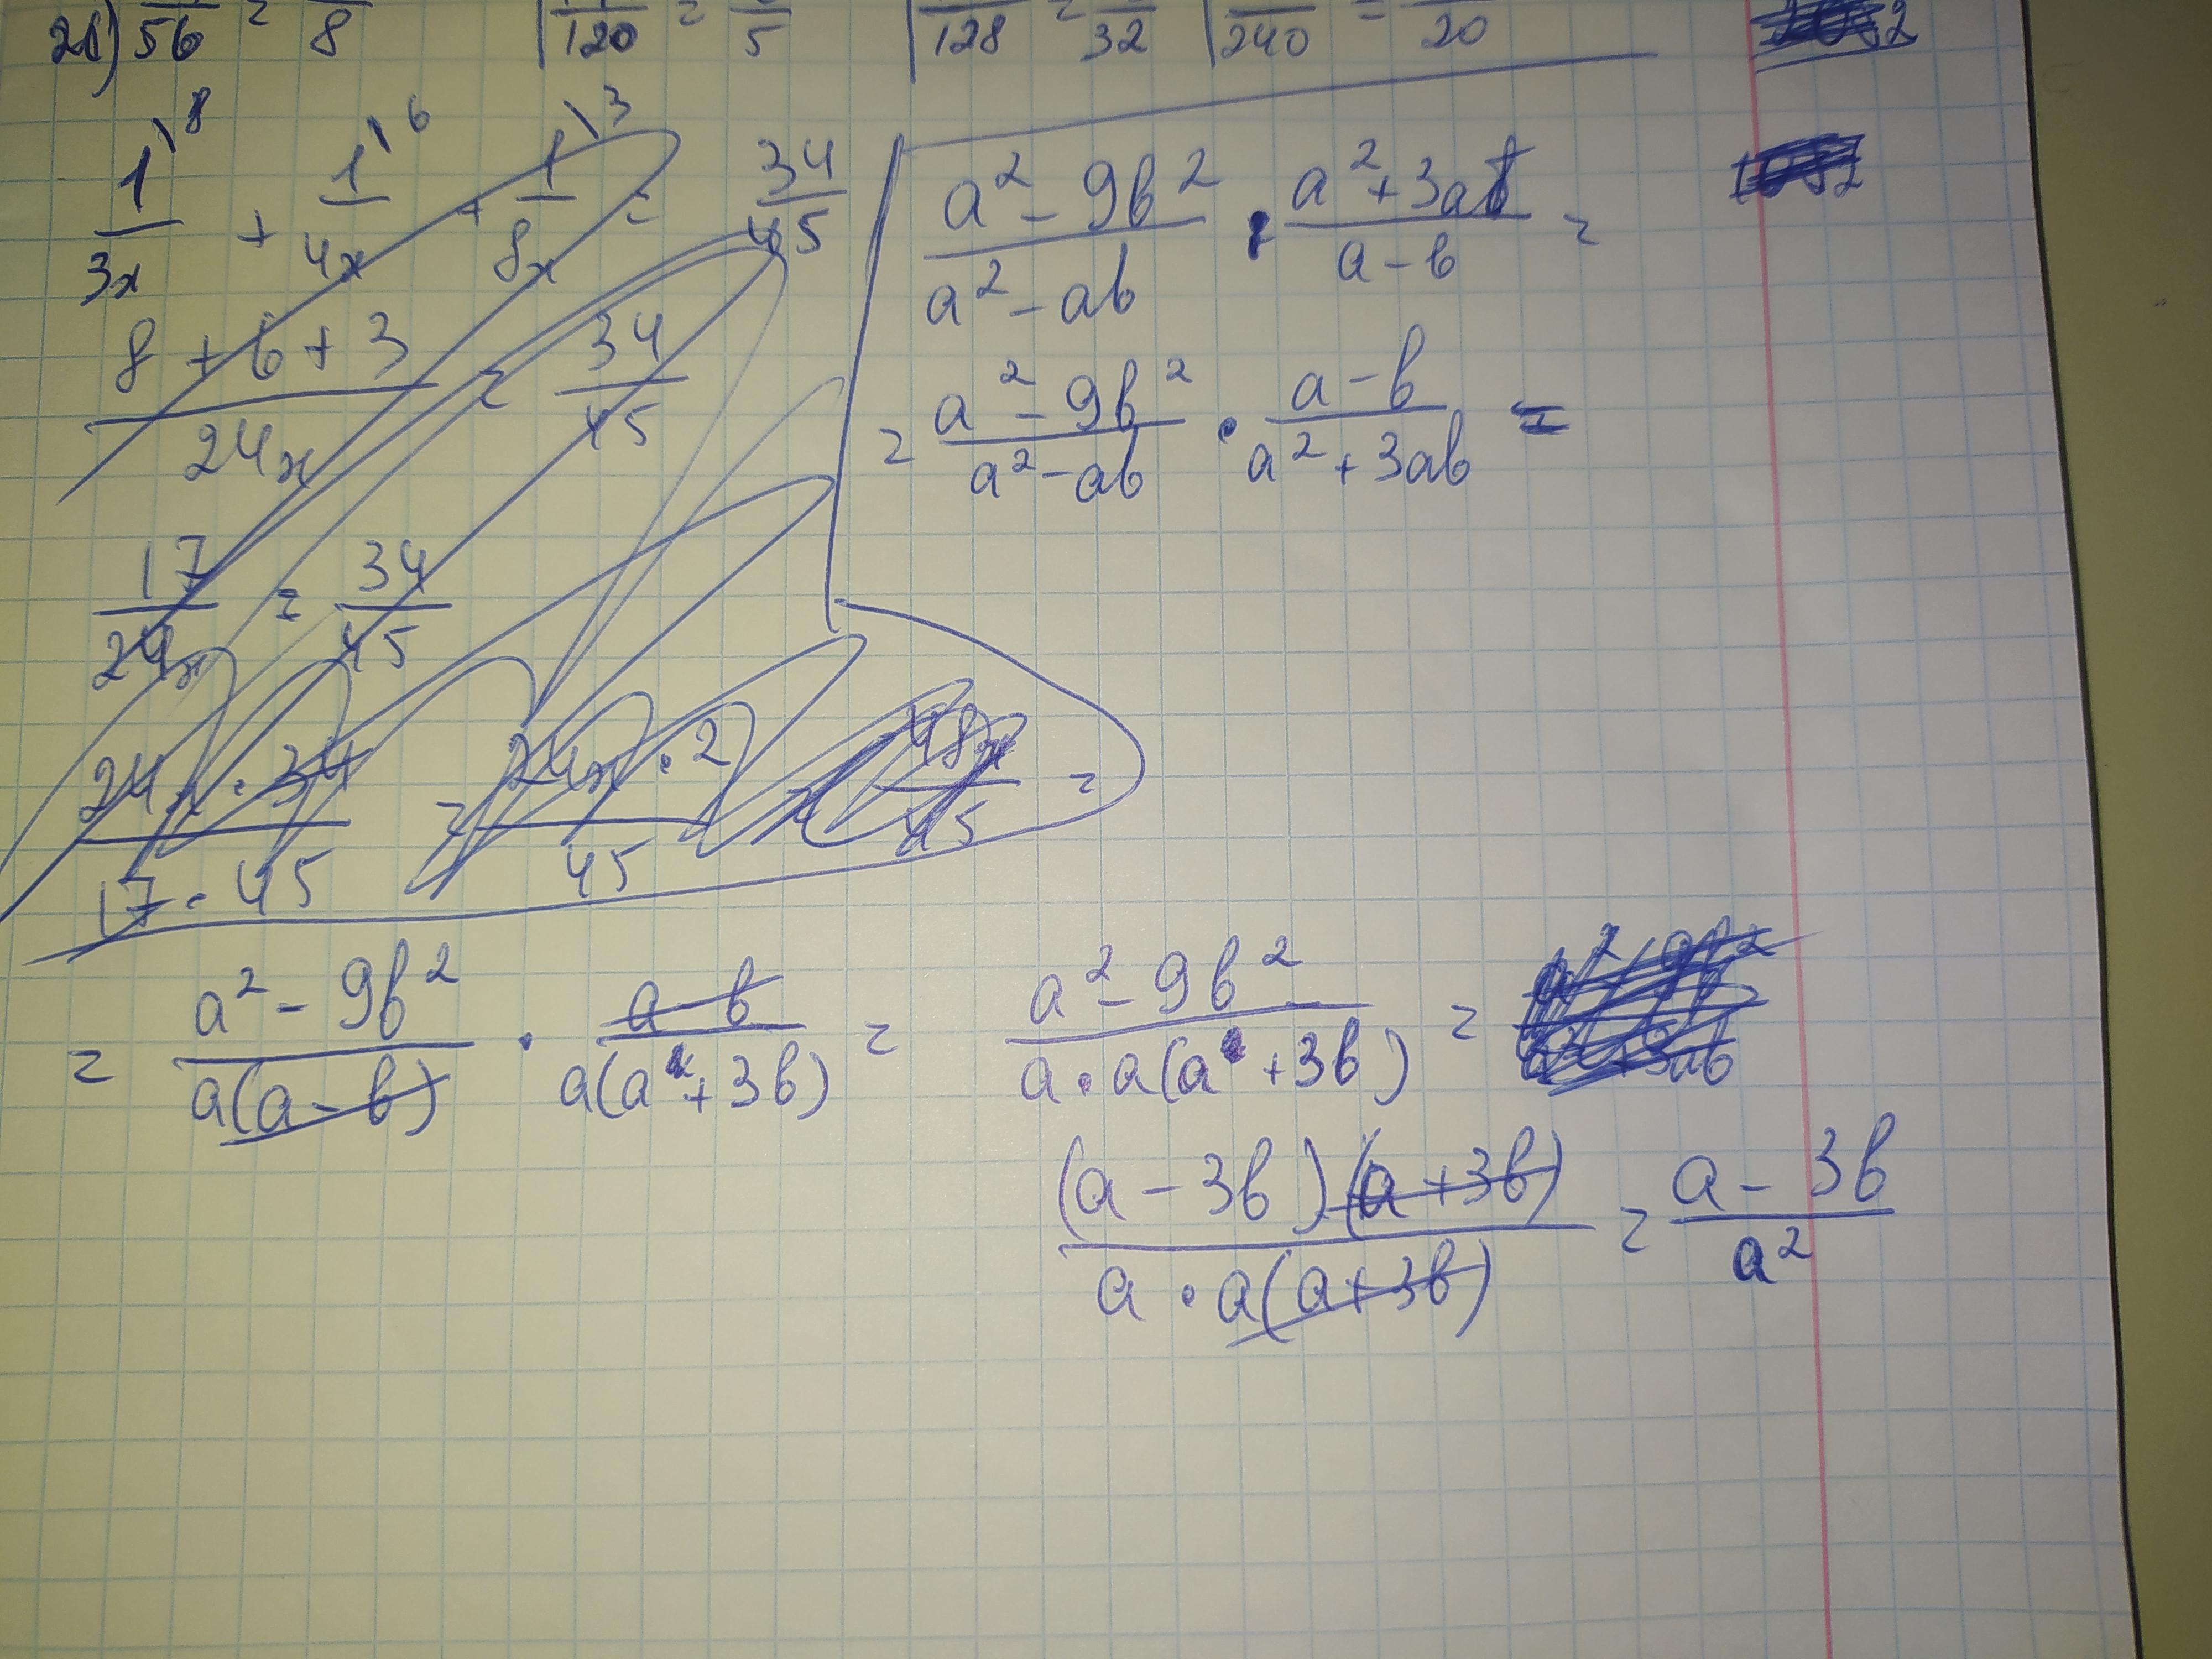 28) /56 = /8 | /120 = /5 | /128 = /32 | /240 = /20
1\8/3x + 1\6/4x + 1\3/8x = 34/45
(8 + 6 + 3)/24x = 34/45
17/24x = 34/45
(24x · 34)/(17 · 45) = (24x · 2)/45 = 48x/45 =
(a² - 9b²)/(a² - ab) : (a² + 3ab)/(a - b) =
= (a² - 9b²)/(a² - ab) · (a - b)/(a² + 3ab) =
= (a² - 9b²)/(a(a - b)) · (a - b)/(a(a + 3b)) = (a² - 9b²)/(a · a(a + 3b)) =
((a - 3b)(a + 3b))/(a · a(a + 3b)) = (a - 3b)/a²